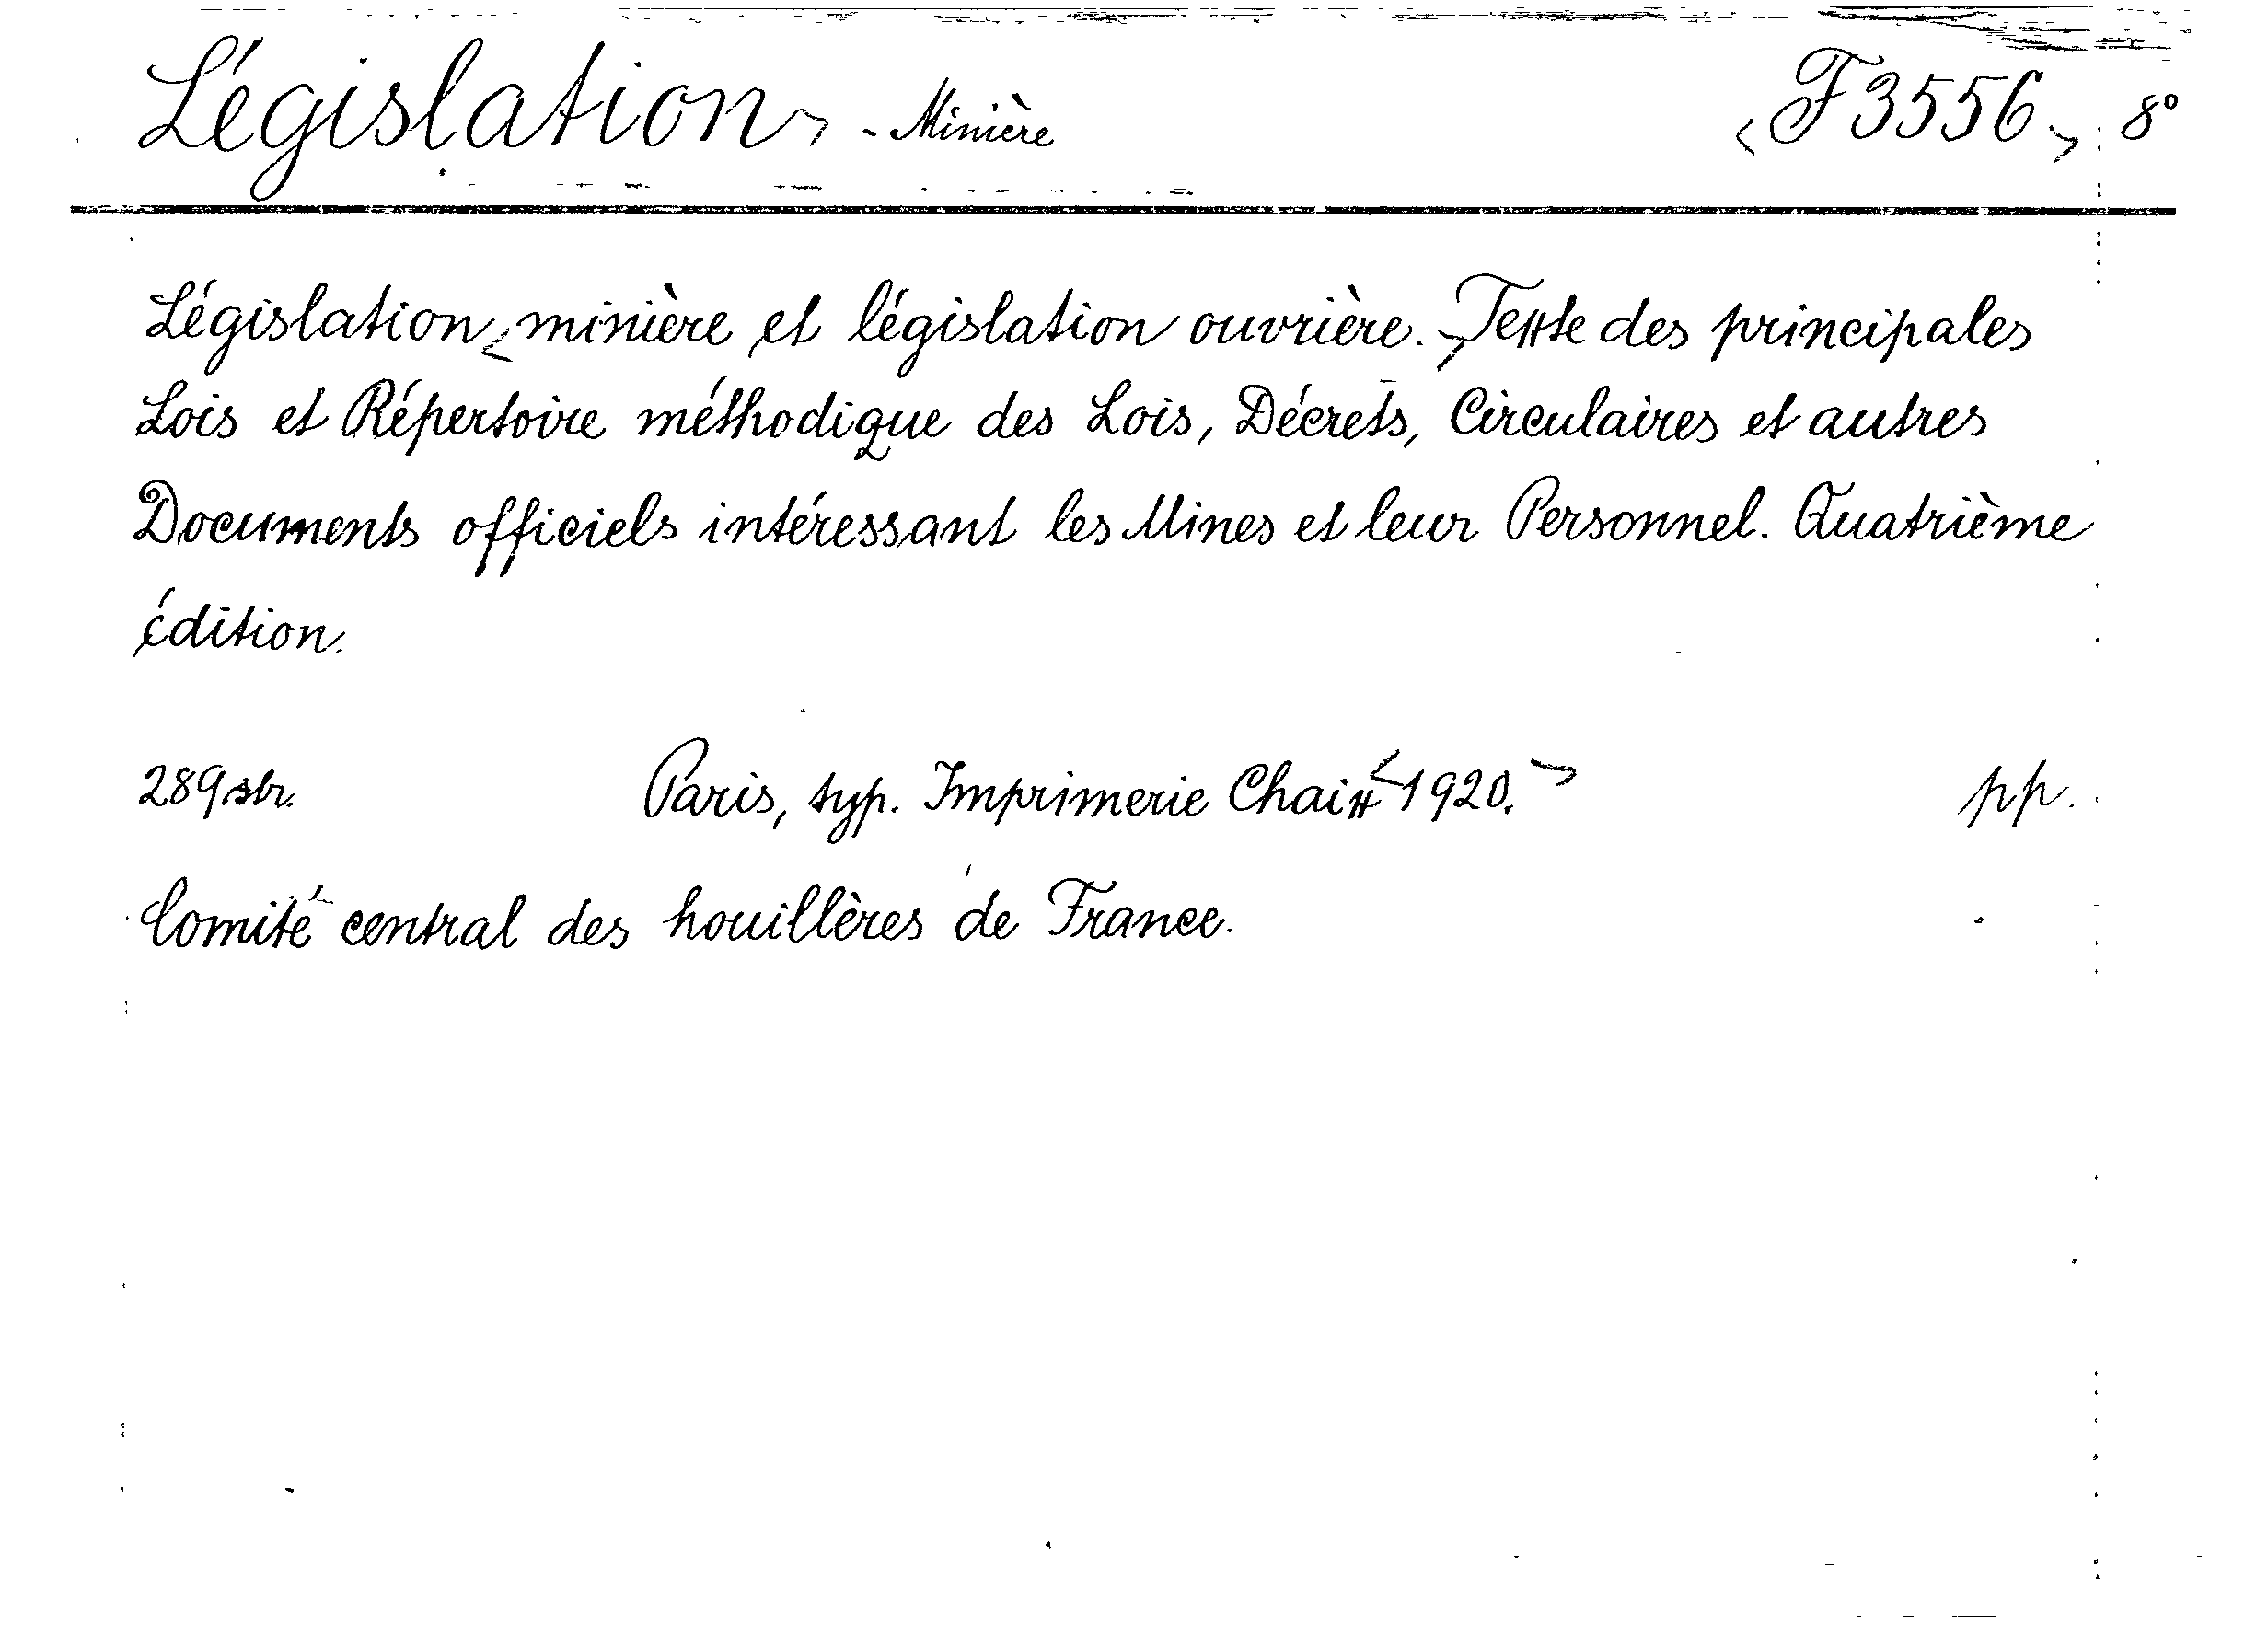 Législation - Minière F 3556 8°
Législation minière et législation ouvrière. Texte des principales
Lois et Répertoire méthodique des Lois, Décrets, Circulaires et autres
Documents officiels intéressant les Mines et leur Personnel. Quatrième
édition.
289 str. Paris, typ. Imprimerie Chaix 1920. pp.
Comité central des houillères de France.